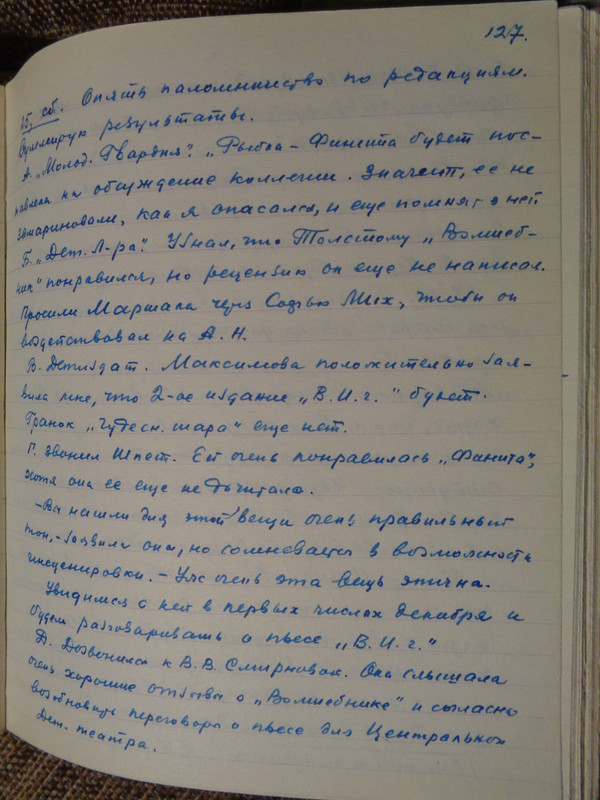 127.
25, сб. Опять паломничество по редакциям.
Суммирую результаты.
А. „Молод. Гвардия". „Рыбка-Финита будет пос-
тавлена на обсуждение коллегии. Значит, ее не
замариновали, как я опасался, и еще помнят о ней
Б. „Дет. Л-ра". Узнал, что Толстому „Волшеб-
ник" понравился, но рецензию он еще не написал.
Просили Маршака через Софью Мих, чтобы он
воздействовал на А. Н.
В. Детиздат. Максимова положительно зая-
вила мне, что 2-ое издание „В. И. г." будет.
Гранок „Чудесн. шара" еще нет.
Г. Звонил Шпет. Ей очень понравилась „Финита",
хотя она ее еще не дочитала.
- Вы нашли для этой вещи очень правильный
тон, - заявила она, но сомневается в возможности
инсценировки. - Уж очень эта вещь эпична.
Увидимся с ней в первых числах декабря и
будем разговаривать о пьесе „В. И. г."
Д. Дозвонился к В. В. Смирновой. Она слышала
очень хорошие отзывы о „Волшебнике" и согласна
возобновить переговоры о пьесе для Центрального
Дет. театра.